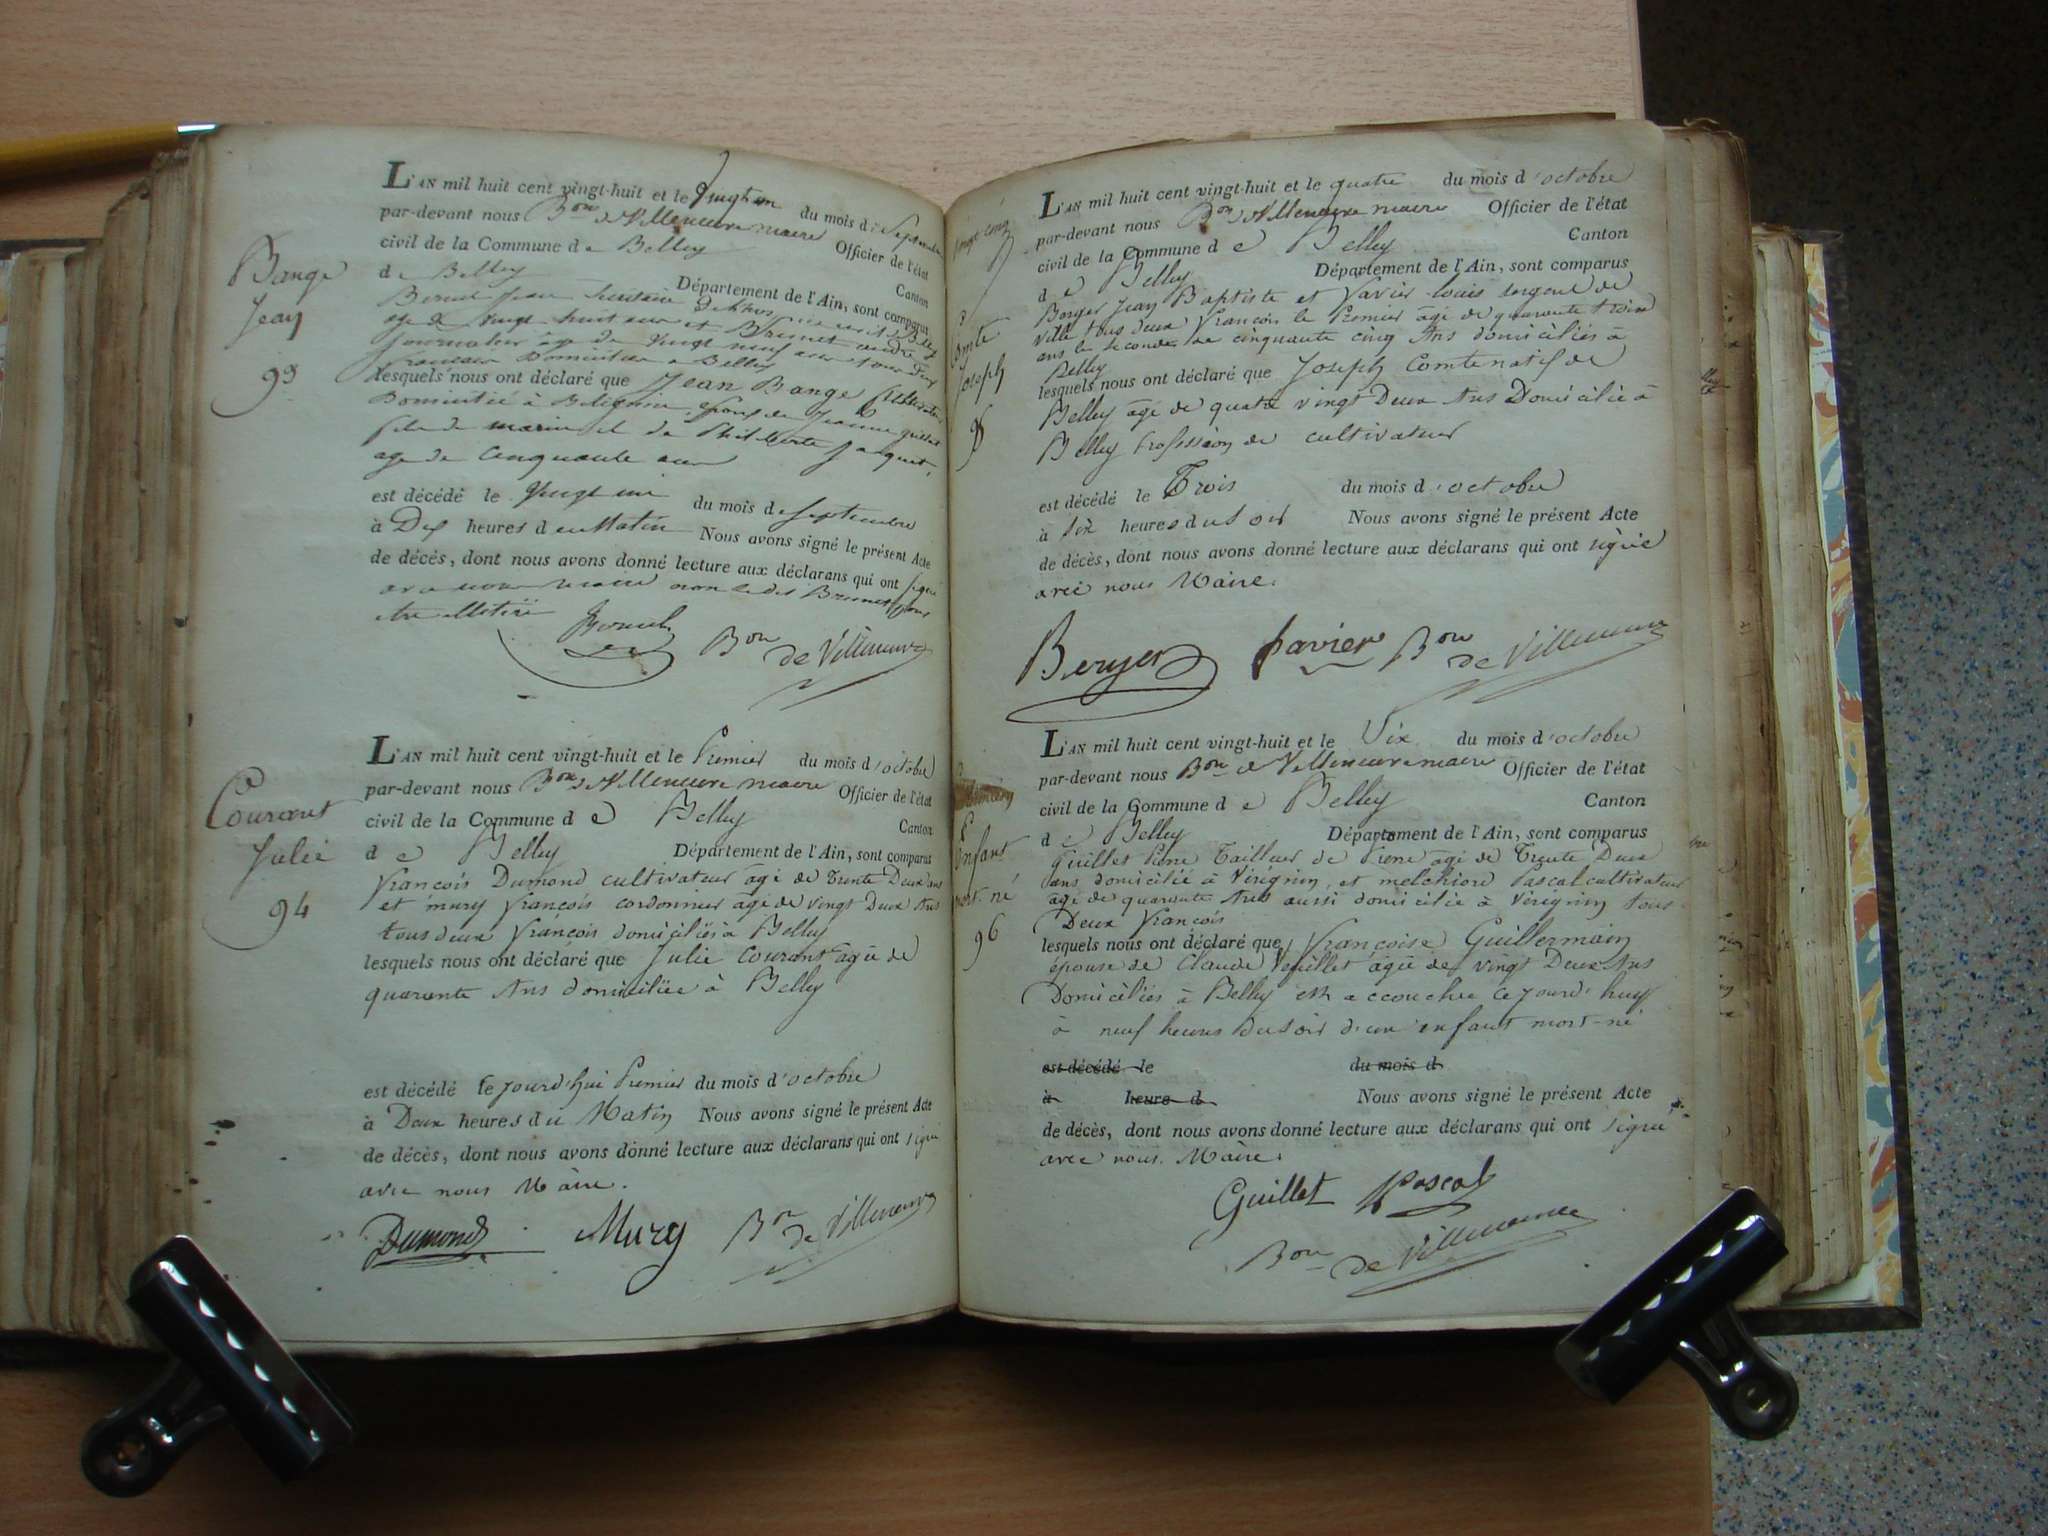 Bange
Jean
93
L'AN mil huit cent vingt-huit et le vingt un du mois de Septembre
par-devant nous Bon de Villeneuve maire Officier de l'état
civil de la Commune de Belley Canton
de Belley Département de l'Ain, sont comparus
age de vingt huit ans et Brunet andré
journalier age de vingt neuf ans tous deux
francais Domiciliés a Belley
lesquels nous ont déclaré que Jean Bange Cultivateur
Domicilié à Belignin epoux de Jeanne guillet
fils de marin et de Philiberte
age de Cinquante ans
est décédé le vingt un du mois de septembre
à Dix heures du Matin Nous avons signé le présent Acte
de décès, dont nous avons donné lecture aux déclarans qui ont signé
avec nous maire non le dit Brunet pour
être illétiré
Bon de Villeneuve
Courant
Julie
94
L'AN mil huit cent vingt-huit et le Premier du mois d'octobre
par-devant nous Bon de Villeneuve maire Officier de l'état
civil de la Commune de Belley Canton
de Belley Département de l'Ain, sont comparus
François Dumond cultivateur agé de Trente Deux ans
et mury françois cordonnier agé de vingt Deux Ans
tous deux François domiciliés à Belley
lesquels nous ont déclaré que Julie Courant agée de
quarante Ans domiciliée à Belley
est décédé le jourd'hui Premier du mois d'octobre
à Deux heures du Matin Nous avons signé le présent Acte
de décès, dont nous avons donné lecture aux déclarans qui ont signé
avec nous Maire.
Dumond Mury Bon de Villeneuve
Comte
Joseph
95
L'AN mil huit cent vingt-huit et le quatre du mois d'octobre
par-devant nous Bon de Villeneuve maire Officier de l'état
civil de la Commune de Belley Canton
de Belley Département de l'Ain, sont comparus
Berger Jean Baptiste et Pavier louis sergent de
ville tous deux François le Premier agé de quarante trois
ans le second de cinquante cinq Ans domiciliés à
Belley
lesquels nous ont déclaré que Joseph Comte natif de
Belley agé de quatre vingt Deux Ans Domicilié à
Belley Profession de cultivateur
est décédé le Trois du mois d'octobre
à six heures du soir Nous avons signé le présent Acte
de décès, dont nous avons donné lecture aux déclarans qui ont signé
avec nous Maire.
Berger Pavier Bon de Villeneuve
Enfant
mort-né
96
L'AN mil huit cent vingt-huit et le Six du mois d'octobre
par-devant nous Bon de Villeneuve maire Officier de l'état
civil de la Commune de Belley Canton
de Belley Département de l'Ain, sont comparus
Guillet Pierre Tailleur de Pierre agé de Trente Deux
ans, domicilié à Virignin, et melchiord Pascal cultivateur
agé de quarante Ans aussi domicilié à Virignin tous
Deux François
lesquels nous ont déclaré que Françoise Guillermain
épouse de Claude Veuillet agée de vingt Deux Ans
Domiciliés à Belley est accouchée ce jourd'huy
à neuf heures du soir d'un enfant mort-né
est décédé le du mois d
à heure d Nous avons signé le présent Acte
de décès, dont nous avons donné lecture aux déclarans qui ont signé
avec nous Maire.
Guillet Pascal
Bon de Villeneuve